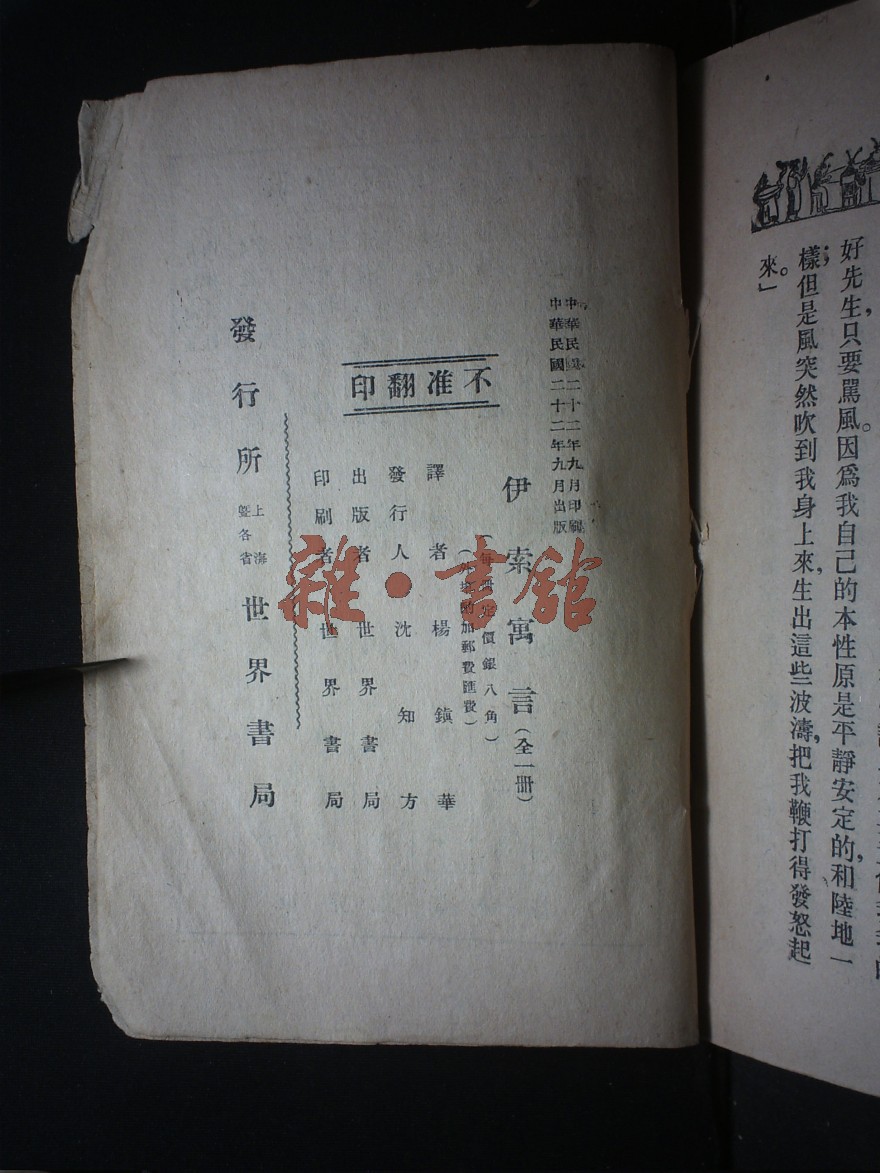 好先生，只要罵風。因爲我自己的本性原是平靜安定的，和陸地一
樣；但是風突然吹到我身上來，生出這些波濤，把我鞭打得發怒起
來。」
中華民國二十二年九月印刷
中華民國二十二年九月出版
伊索寓言（全一冊）
（每冊定價銀八角）
（外埠酌加郵費匯費）
不准翻印
譯者楊鎮華
發行人沈知方
出版者世界書局
印刷者世界書局
發行所上海暨各省世界書局
雜·書館